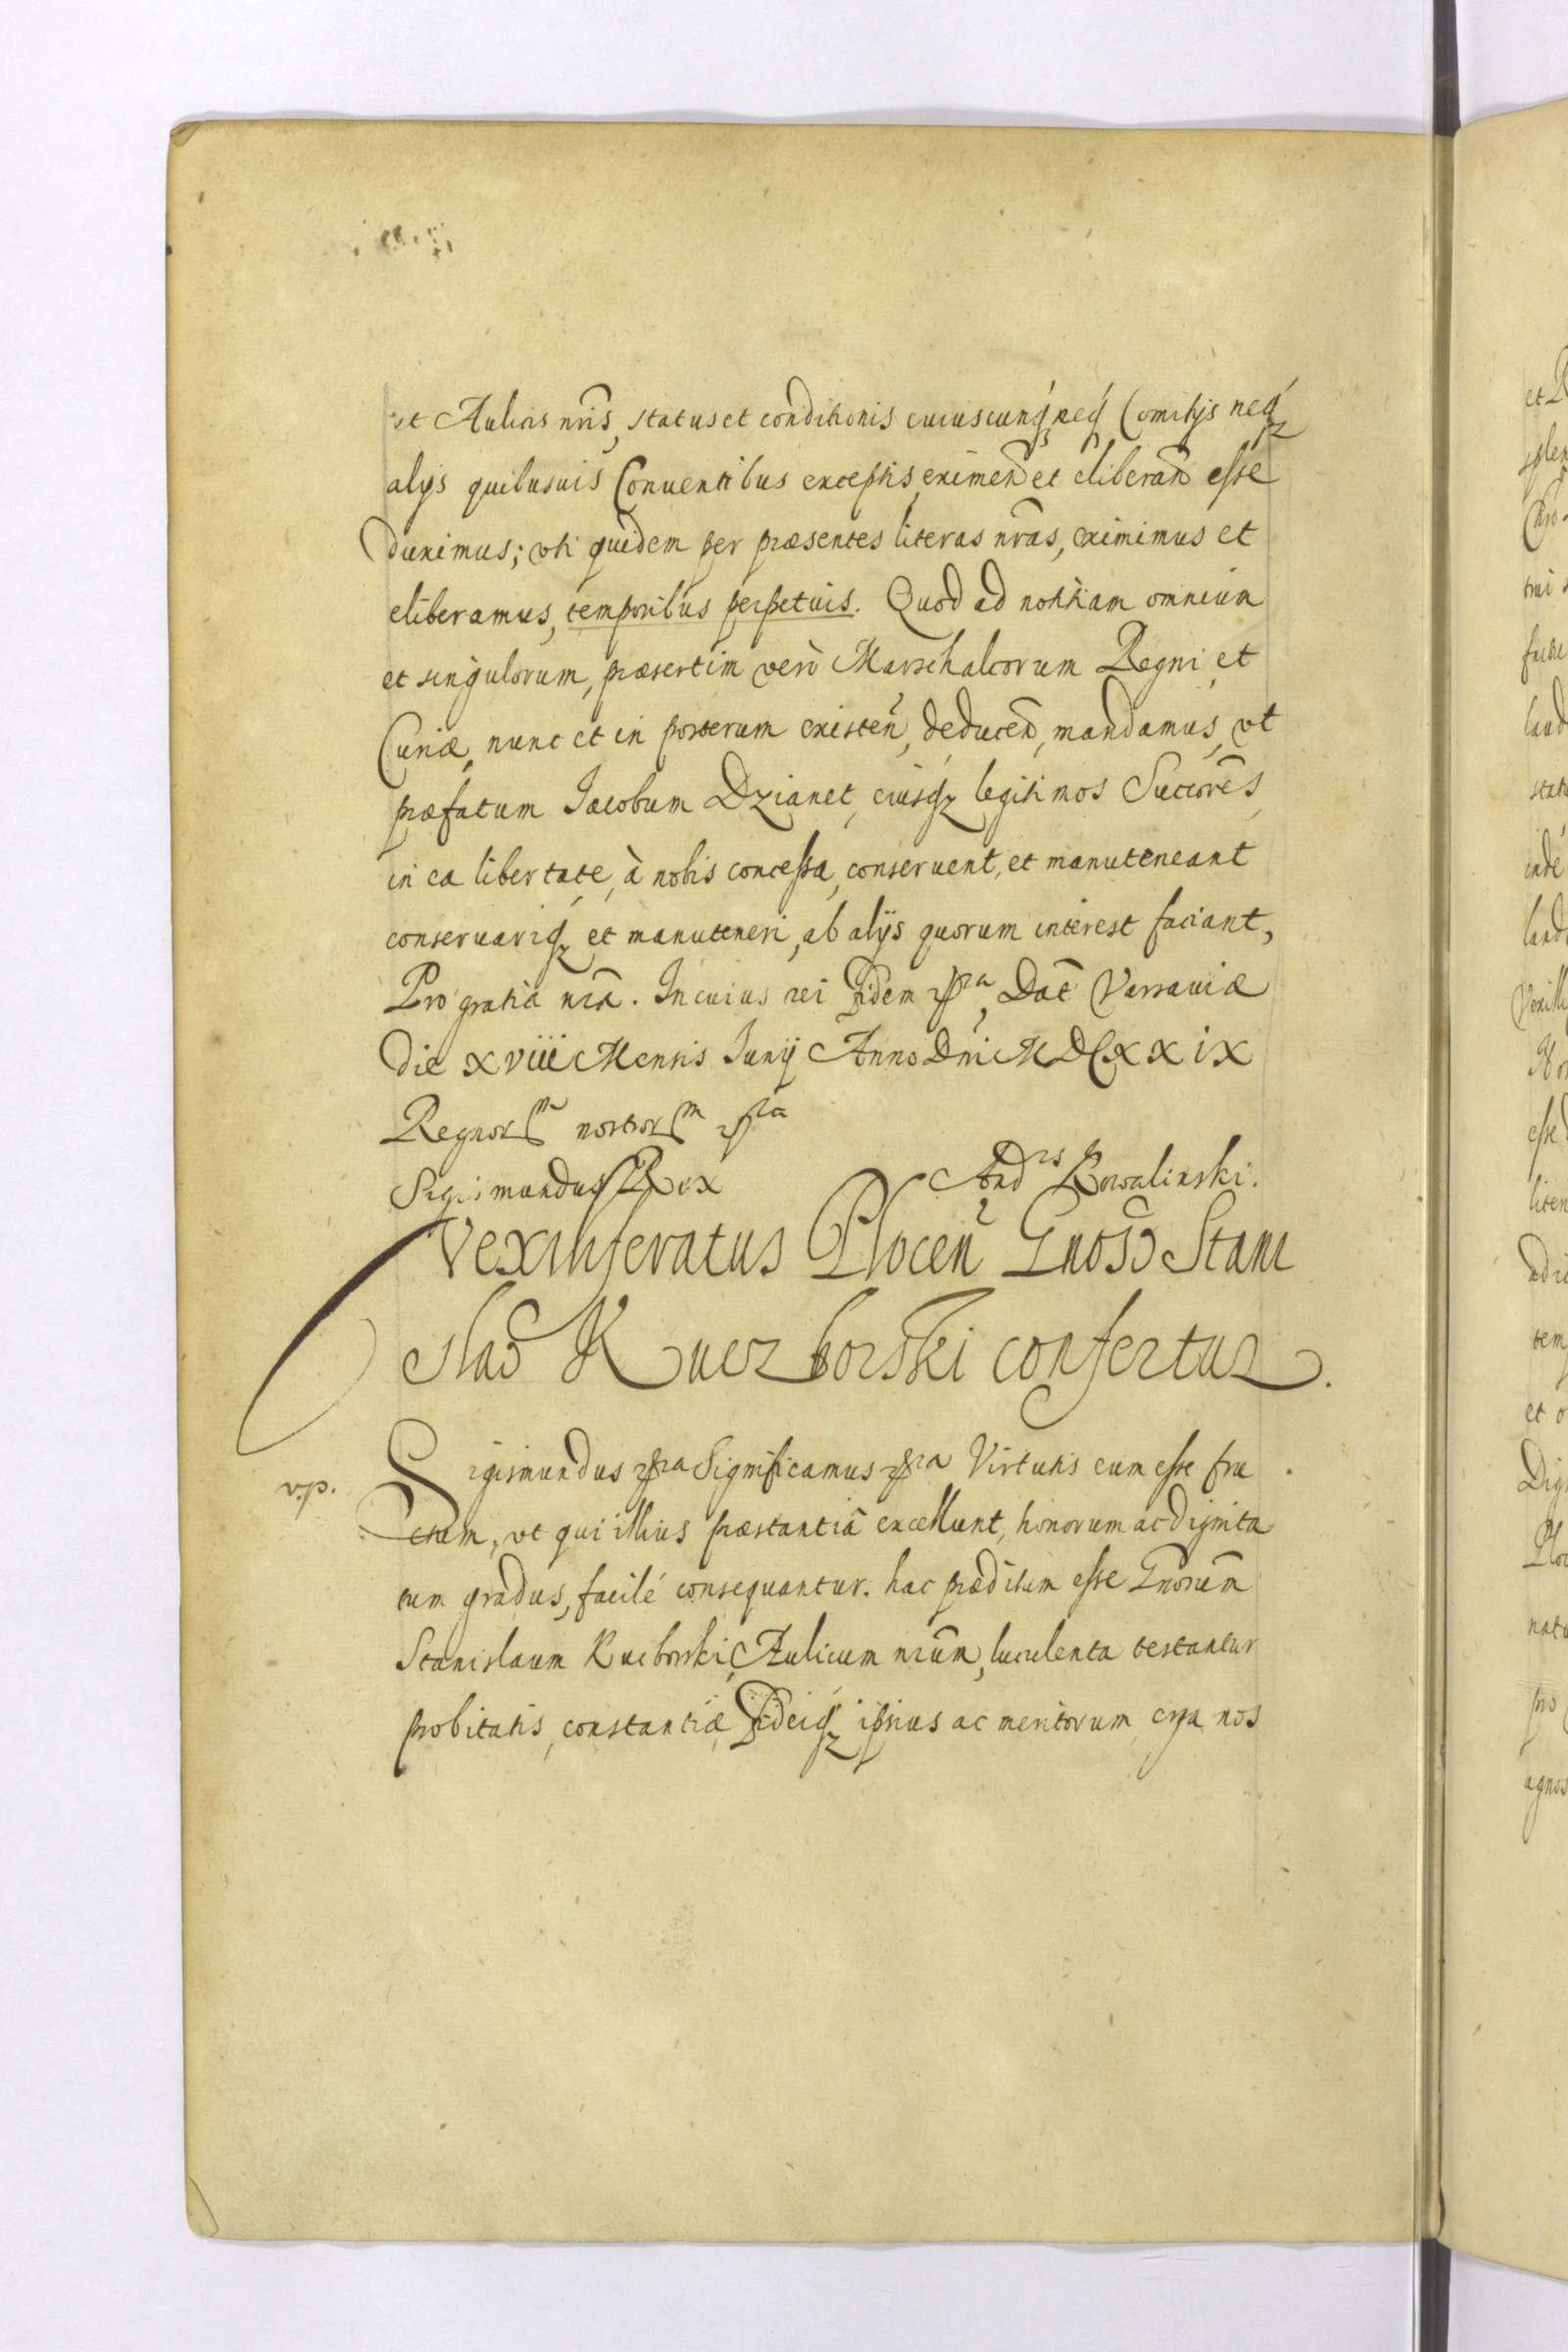 et Aulicis nr̃is, status et conditionis cuiuscunq̃, neq̃ Comitÿs neq̃
alÿs quibusuis Conuentibus exceptis, eximeñd et eliberañd esse
duximus; vti quidem per præsentes literas nr̃as, eximimus et
eliberamus, temporibus perpetuis. Quod ad notitiam omnium
et singulorum, præsertim verò Marschalcorum Regni, et
Curiæ, nunc et in posterum existeñ, deduceñd, mandamus, vt
præfatum Iacobum Dzianet, eiusq₃ legitimos Succor̃es,
in ea libertate, à nobis concessa, conseruent, et manuteneant
conseruariq₃ et manuteneri, ab alÿs quorum interest faciant,
Pro gratia nr̃a. In cuius rei fidem ꝛp̃ra, Dat̃ Varsauiæ
die XVIII Mensis Iunÿ Anno Dn̄i MDCXXIX
Regnorum nostrorum ꝛp̃ra
Sigismundus Rex Andrs Kowalinski.
Vexilliferatus Plocen̄ Gnoso Stani
slao Kuczborski confertur.
v.p. Sigismundus ꝛp̃ra Significamus ꝛp̃ra Virtutis eum esse fru
ctum, vt qui illius præstantiâ excellunt, honorum ac dignita
tum gradus, facilé consequantur. hac præditum esse Gnõsum
Stanislaum Kucborski, Aulicum nr̃um, luculenta testantur
probitatis, constantiæ, fideiq₃ ipsius ac meritorum, erga nos